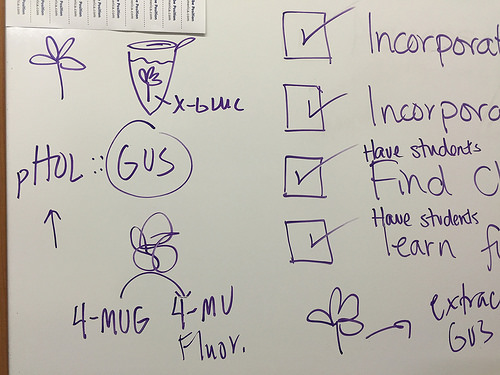 x-Gluc
pHOL :: GUS
4-MUG 4-MU
Fluor.
Incorporat
Incorpora
Have students
Find C
Have students
learn f
extrac
GUS